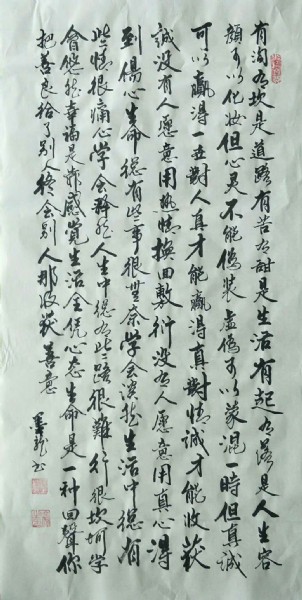 有沟有坎是道路有苦有甜是生活有起有落是人生容
颜可以化妆但心灵不能伪装虚伪可以蒙混一时但真诚
可以赢得一世对人真才能赢得真对情诚才能收获
诚没有人愿意用热情换回敷衍没有人愿意用真心得
到伤心生命总有些事很无奈学会淡然生活中总有
些情很痛心学会释然人生中总有些路很难行很坎坷学
会悠然幸福是靠感觉生活全凭心态生命是一种回声你
把善良给了别人终会别人那收获善意
墨龙书